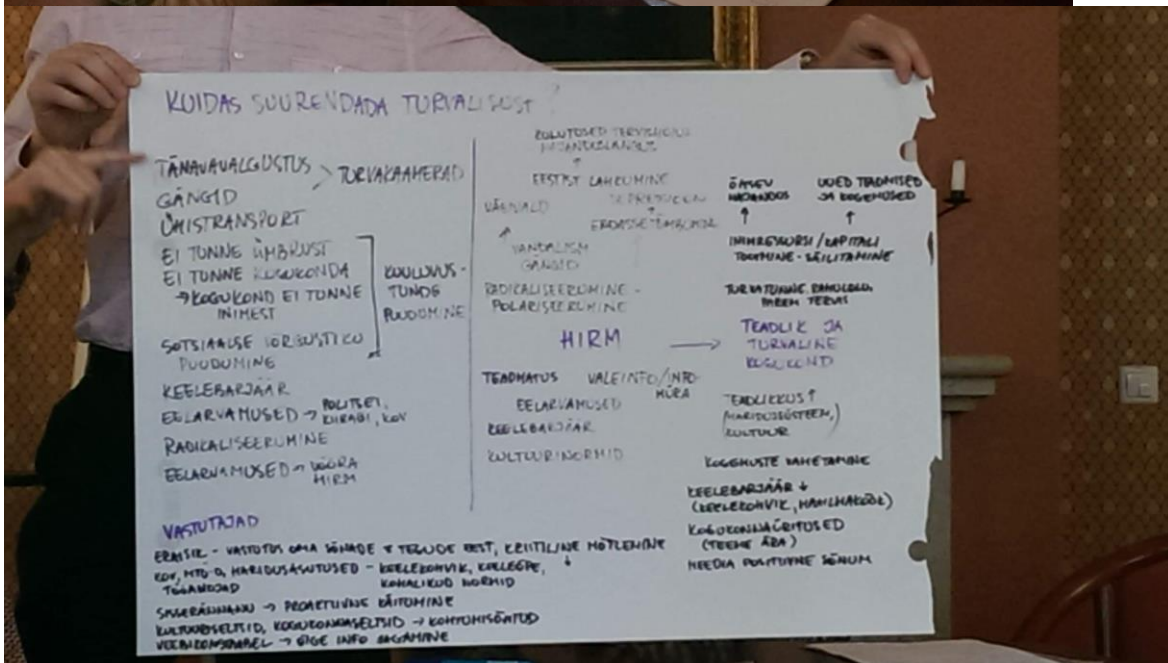 KUIDAS SUURENDADA TURVALISUST?
TÄNAVAVALGUSTUS > TURVAKAAMERAD
GÄNGID
ÜHISTRANSPORT
EI TUNNE ÜMBRUST
EI TUNNE KOGUKONDA
→ KOGUKOND EI TUNNE
INIMEST
SOTSIAALSE VÕRGUSTIKU
PUUDUMINE
KUULUVUS-
TUNDE
PUUDUMINE
KEELEBARJÄÄR
EELARVAMUSED → POLITSEI,
KIIRABI, KOV
RADIKALISEERUMINE
EELARVAMUSED → VÕÕRA
HIRM
KULUTUSED TERVISHOIUS
MAJANDUSLANGUS
↑
EESTIST LAHKUMINE
VÄGIVALD
↑
VANDALISM
GÄNGID
RADIKALISEERUMINE -
POLARISEERUMINE
HIRM →
TEADMATUS
VALEINFO/INFO-
MÜRA
EELARVAMUSED
KEELEBARJÄÄR
KULTUURINORMID
MAJANDUS
UUED TEADMISED
JA KOGEMUSED
↑
↑
INIMRESSURSI/KAPITALI
TOOMINE-SÄILITAMINE
TURVATUNNE, RAHULOLU,
PAREM TERVIS
TEADLIK JA
TURVALINE
KOGUKOND
TEADLIKKUS ↑
(HARIDUSSÜSTEEM,
KULTUUR
KOGEMUSTE VAHETAMINE
KEELEBARJÄÄR ↓
(KEELEKOHVIK, MAAILMAKOOL)
KOGUKONNAÜRITUSED
(TEEME ÄRA)
MEEDIA POSITIIVNE SÕNUM
VASTUTAJAD
ERAISIK - VASTUTUS OMA SÕNADE & TEGUDE EEST, KRIITILINE MÕTLEMINE
KOV, MTÜ-D, HARIDUSASUTUSED - KEELEKOHVIK, KOLLEEGE, ↓
TÖÖANDJAD
KOHALIKUD NORMID
SISSERÄNNANU → PROAKTIIVNE KÄITUMINE
KULTUURISELTSID, KOGUKONDASELTSID → KOHTUMISÕHTUD
VEEBIKONSTAABEL → ÕIGE INFO JAGAMINE